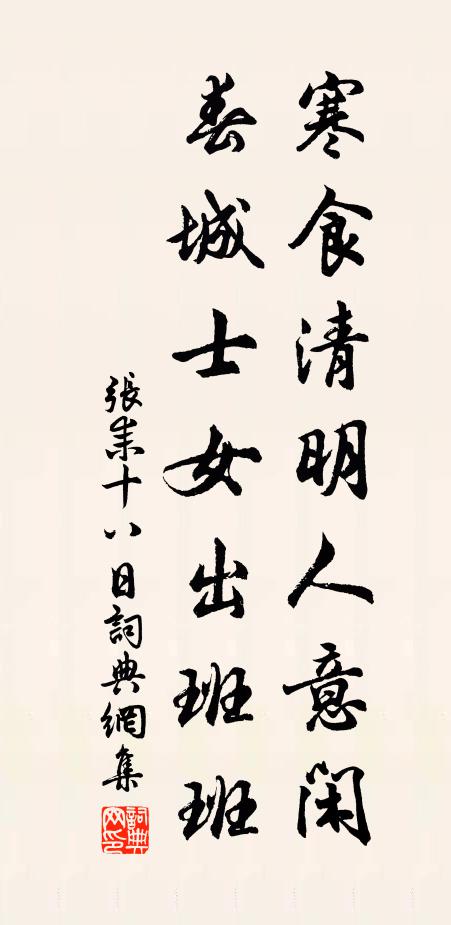 寒食清明人意闲
春城士女出班班
張耒十八日詞典網集
詞典網印